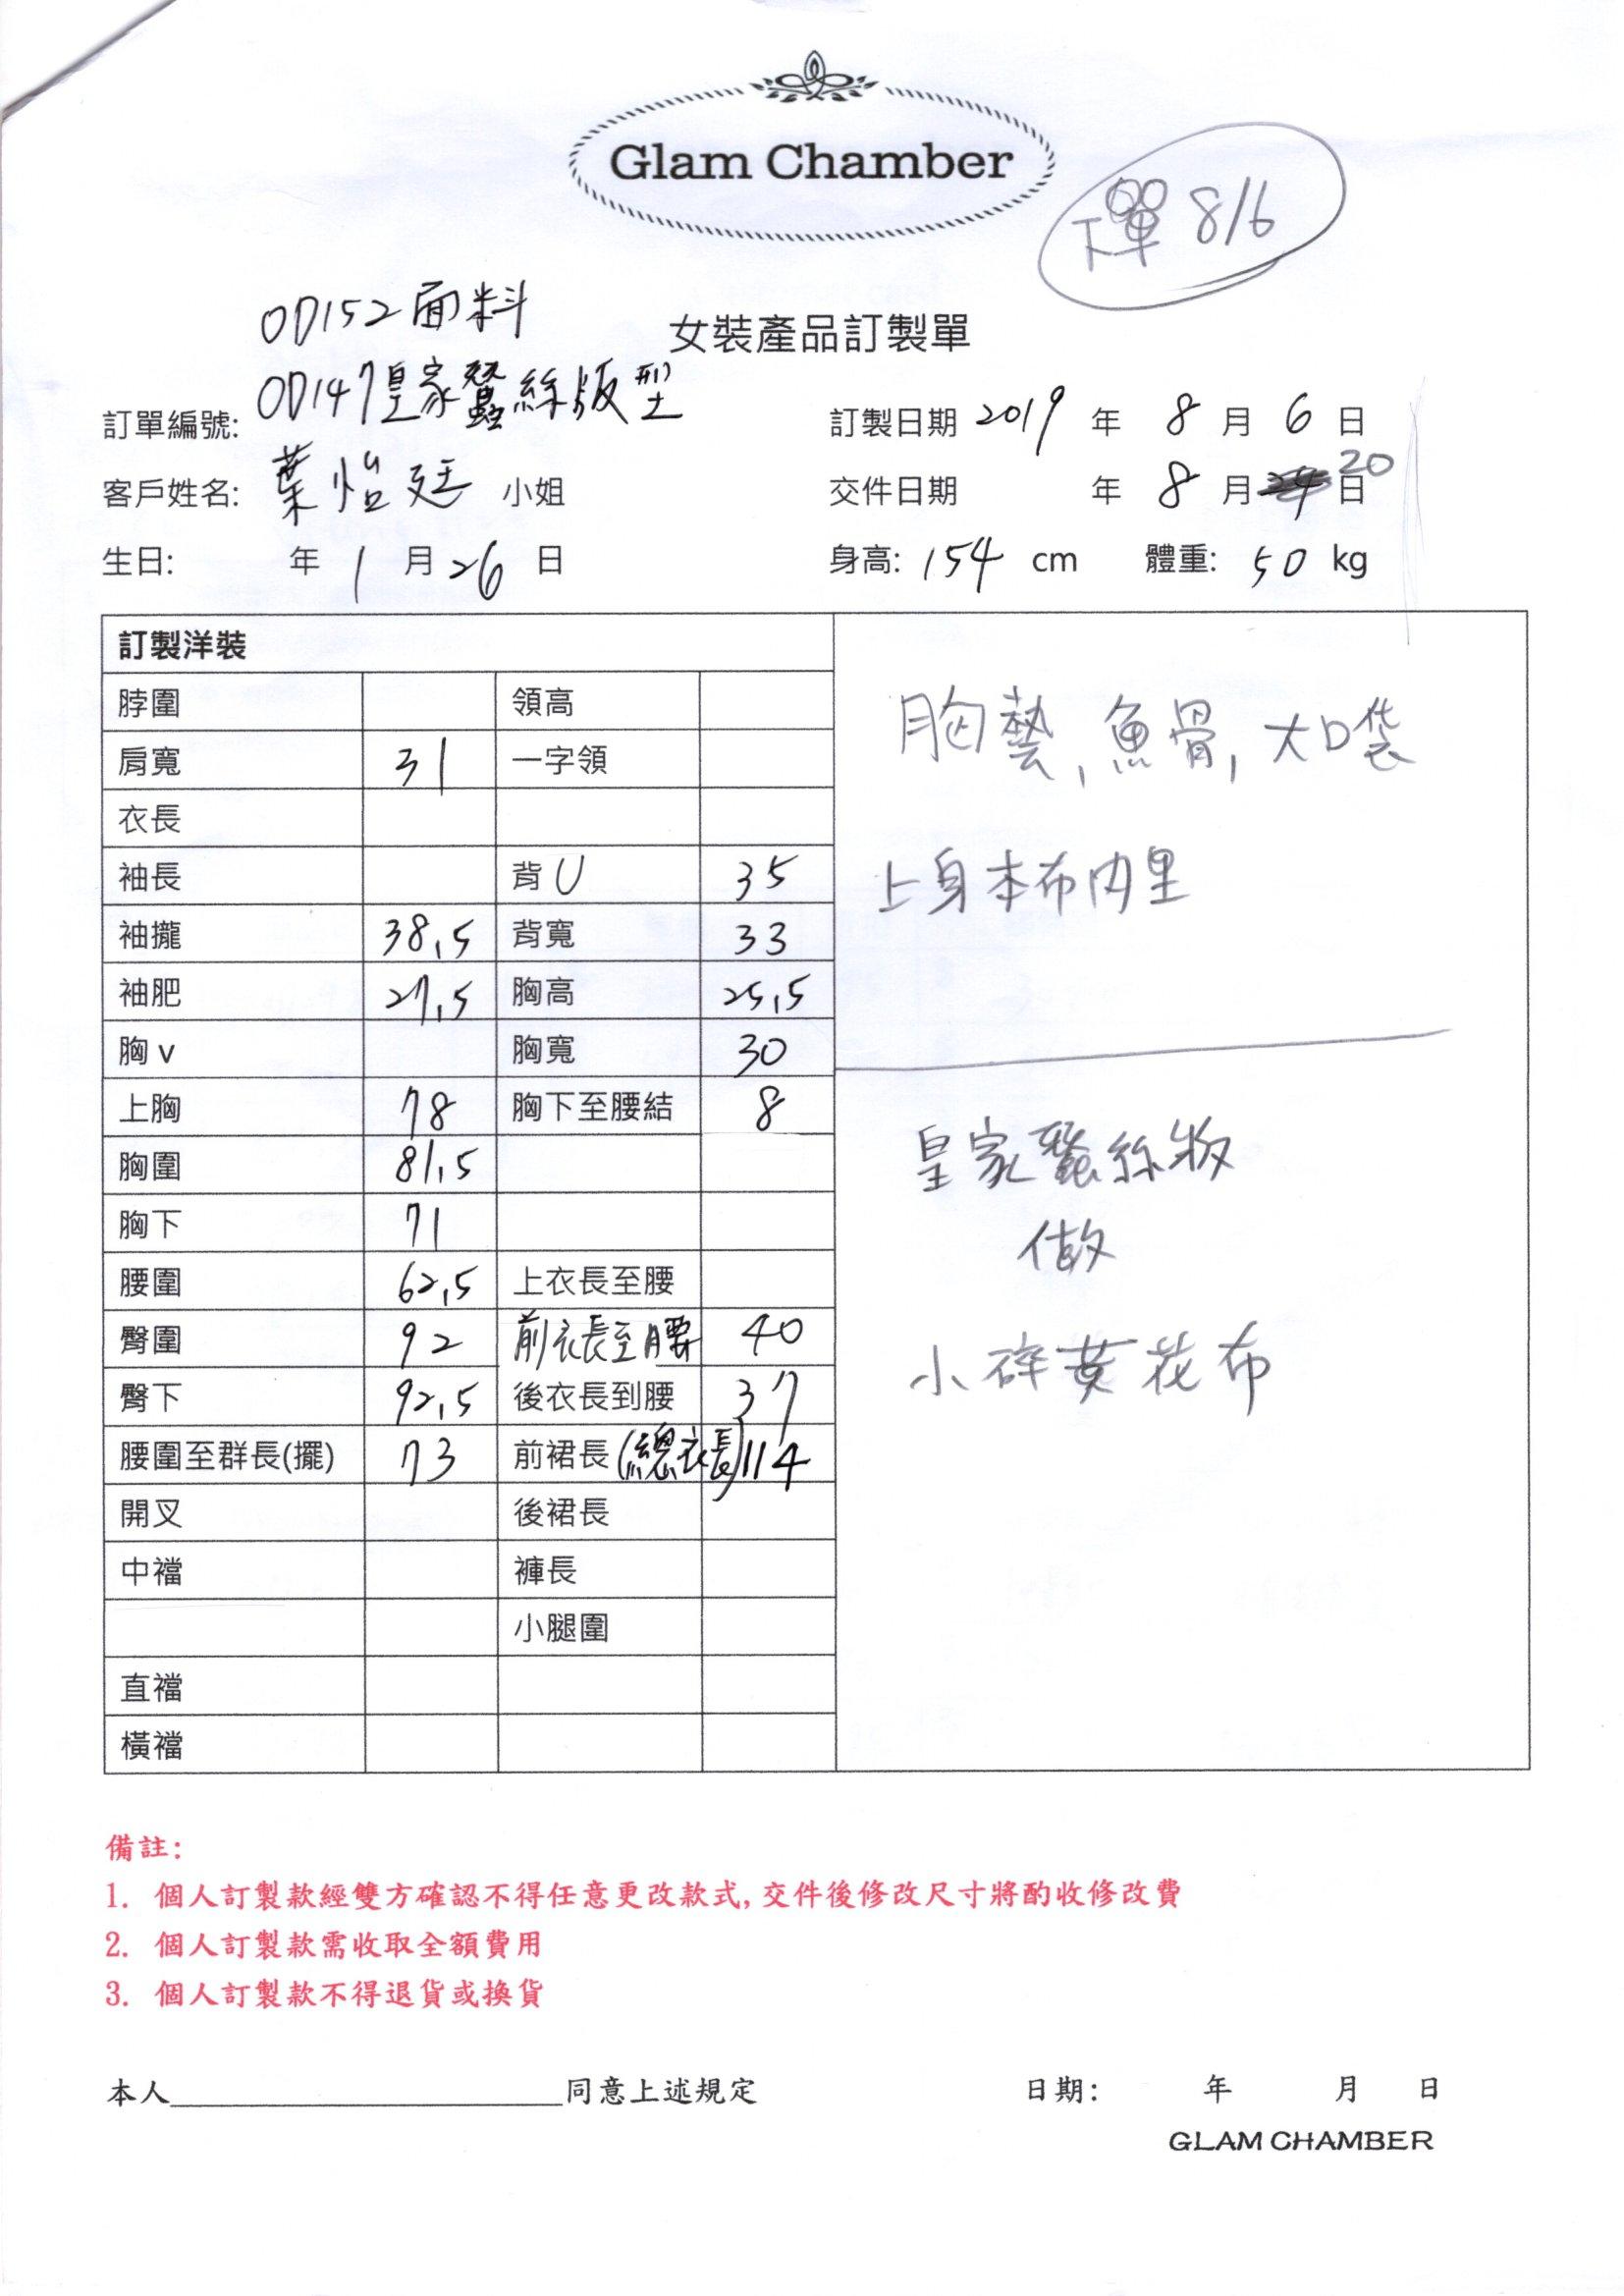 Glam Chamber
下單 8/6
OD152面料
女裝產品訂製單
OD147皇家蠶絲版型
訂單編號:
訂製日期 2019 年 8 月 6 日
客戶姓名: 葉怡廷 小姐
交件日期 年 8 月 20 日
生日: 年 1 月 26 日
身高: 154 cm 體重: 50 kg
訂製洋裝
脖圍 領高
肩寬 31 一字領
衣長
袖長 背U 35
袖攏 38.5 背寬 33
袖肥 27.5 胸高 25.5
胸 v 胸寬 30
上胸 78 胸下至腰結 8
胸圍 81.5
胸下 71
腰圍 62.5 上衣長至腰
臀圍 92 前衣長至腰 40
臀下 92.5 後衣長到腰 37
腰圍至群長(擺) 73 前裙長(總衣長) 114
開叉 後裙長
中襠 褲長
小腿圍
直襠
橫襠
胸藝,魚骨,大口袋
上身本布內里
皇家蠶絲版
做
小碎黃花布
備註:
1. 個人訂製款經雙方確認不得任意更改款式,交件後修改尺寸將酌收修改費
2. 個人訂製款需收取全額費用
3. 個人訂製款不得退貨或換貨
本人 同意上述規定 日期: 年 月 日
GLAM CHAMBER